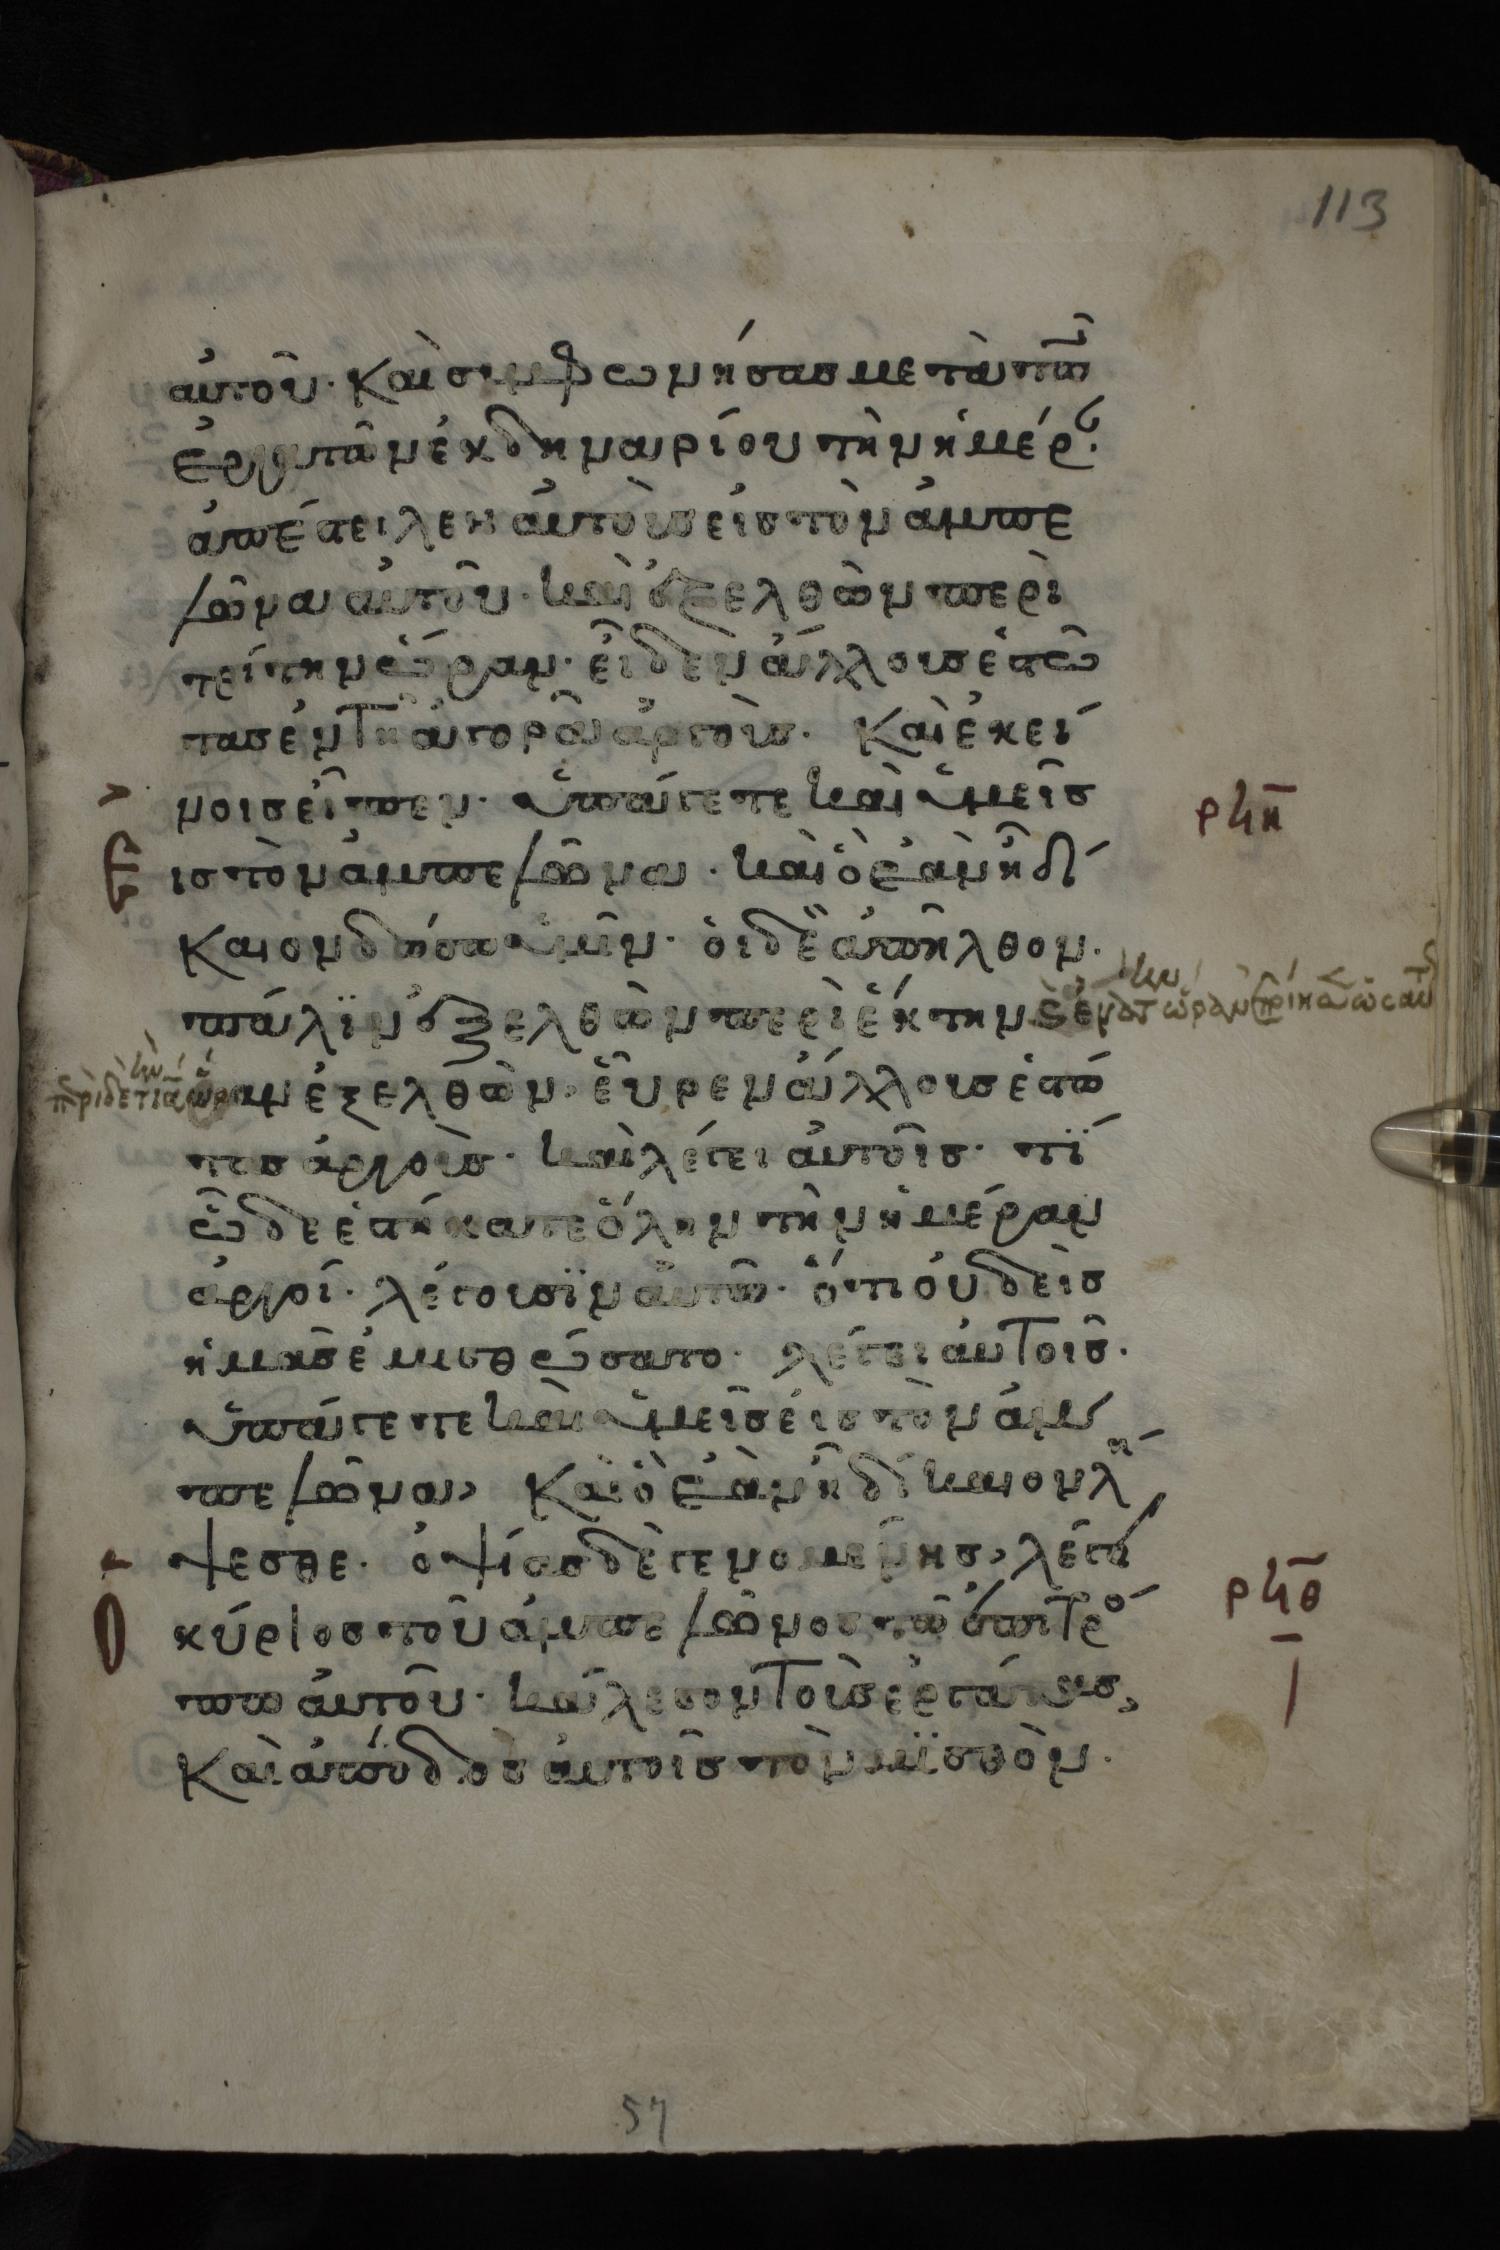 113
αὐτοῦ· Καὶ συμφωνήσας μετὰ τῶν
ἐργατῶν ἐκ δηναρίου τὴν ἡμέρ
ἀπέστειλεν αὐτοὺς εἰς τὸν ἀμπε
λῶνα αὐτοῦ· καὶ ἐξελθὼν περὶ
τρίτην ὥραν· εἶδεν ἄλλους ἑστῶ
τας ἐν τῆ ἀγορᾶ ἀργοὺς· Καὶ ἐκεί
νοις εἶπεν· ὑπάγετε καὶ ὑμεῖς
ρϟη
ις τὸν ἀμπελῶνα· καὶ ὃ ἐὰν ῆ δί
καιον δώσω ὑμῖν· οἱ δὲ ἀπῆλθον·
πάλϊν ἐξελθὼν περὶ ἕκτην
αν ἐξελθὼν, εὗρεν ἄλλους ἑστῶ
τας ἀργοὺς· καὶ λέγει αὐτοῖς· τΐ
ὧδε ἑστήκατε ὅλην τὴν ἡμέραν
ἀργοῖ· λέγουσϊν αὐτῶ· ὅτι οὐδεὶς
ἡμᾶς ἐμισθώσατο· λέγει αὐτοῖς·
ὑπάγετε καὶ ὑμεῖς εἰς τὸν ἀμ
πελῶνα, Καὶ ὃ ἐὰν ῆ δίκαιον λή
ψεσθε· ὀψίας δὲ γενομένης, λέγει
ρϟθ
κύριος τοῦ ἀμπελῶνος τῶ ἐπιτρό
πω αὐτοῦ· κάλεσον τοὺς ἐργάτας,
Καὶ ἀπόδος αὐτοῖς τὸν μϊσθὸν·
57